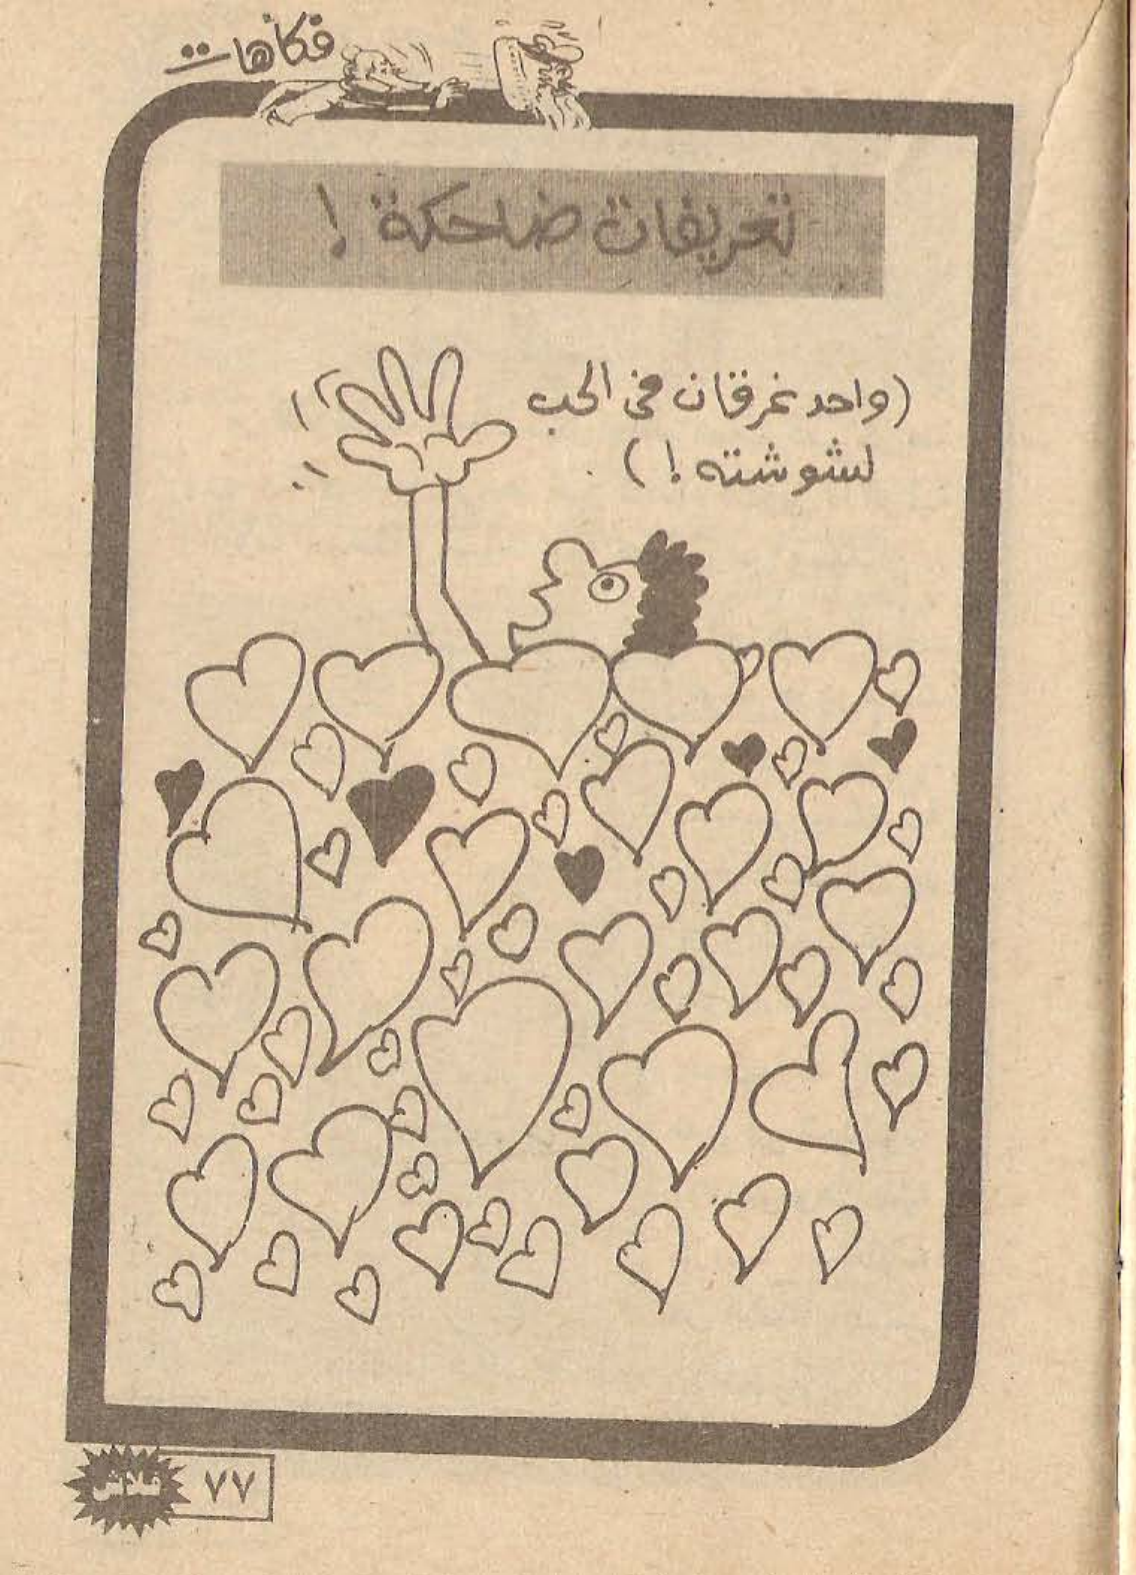 فكاهات
تعريفات ضاحكة !
(واحد غرقان فى الحب
لشوشته !) .
٧٧
فلاش